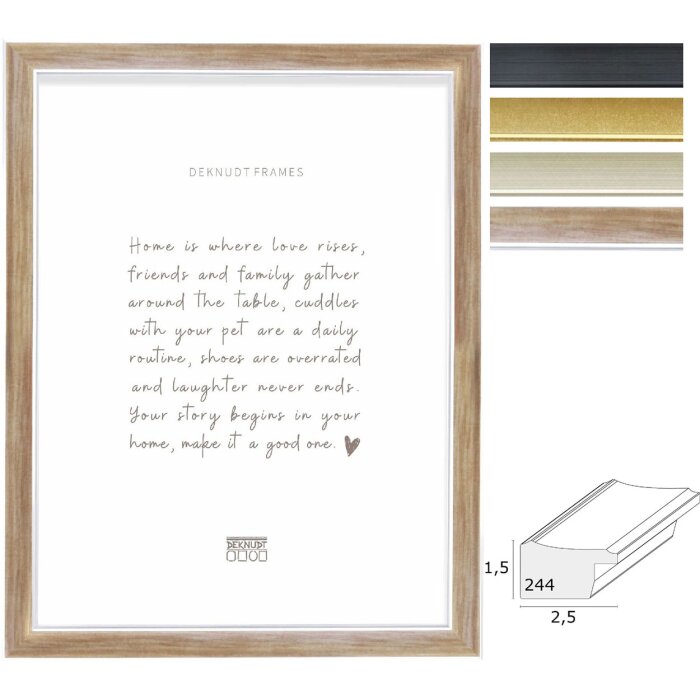 DEKNUDT FRAMES
Home is where love rises,
friends and family gather
around the table, cuddles
with your pet are a daily
routine, shoes are overrated
and laughter never ends.
Your story begins in your
home, make it a good one.
DEKNUDT
1,5
244
2,5